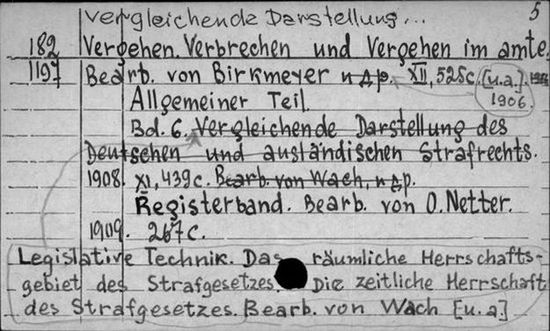 vergleichende Darstellung... 5
182 Vergehen. Verbrechen und Vergehen im amte.
1197 Bearb. von Birkmeyer и др. XII, 525 с. [u.a.]
1906.
Allgemeiner Teil.
Bd. 6. Vergleichende Darstellung des
Deutschen und ausländischen Strafrechts.
1908. XI, 439 с. Bearb. von Wach, и др.
Registerband. Bearb. von O. Netter.
1909. 267 с.
Legislative Technik. Das räumliche Herrschafts-
gebiet des Strafgesetzes. Die zeitliche Herrschaft
des Strafgesetzes. Bearb. von Wach [u.a.]